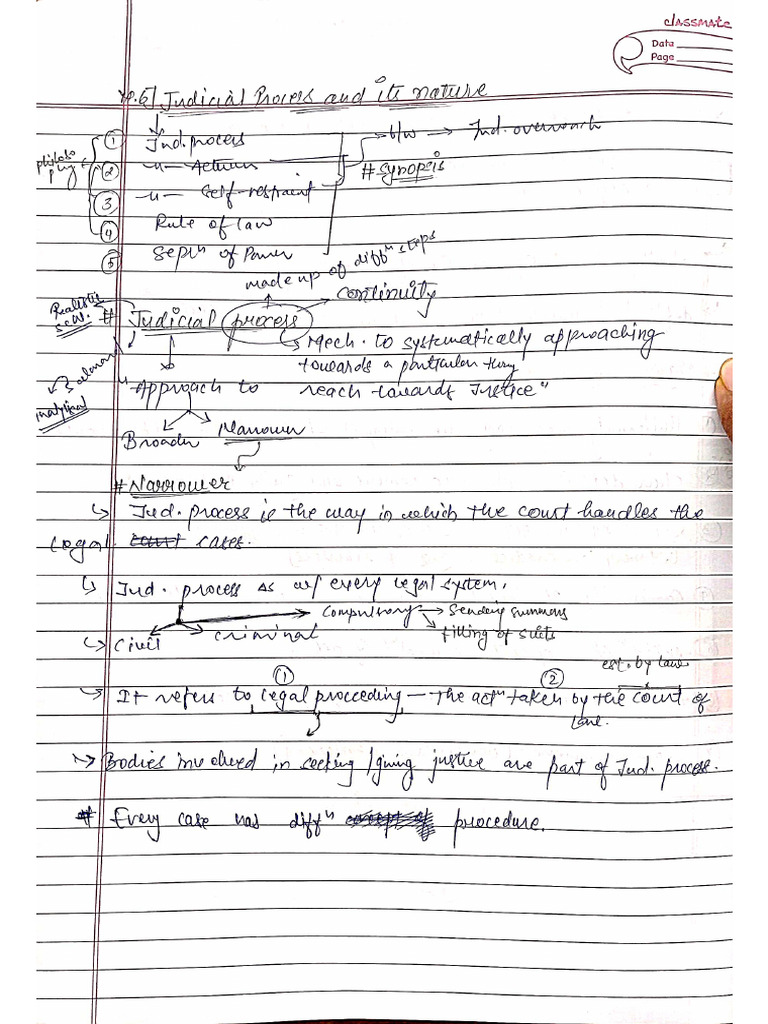 classmate
Date
Page
Judicial Process and its nature
① Jud. process
② -"- Activism
③ -"- Self-restraint
④ Rule of law
⑤ Sepⁿ of Power
b/w → Jud. overreach
# Synopsis
made up of diffⁿ steps
continuity
Realistic
# Judicial process
Mech. to systematically approaching
towards a particular thing
analytical
"Approach to reach towards Justice"
Broader Narrower
# Narrower
↳ Jud. process is the way in which the court handles the
legal court cases.
↳ Jud. process as w/ every legal system.
Compulsory → Sending summons
filling of suits
↳ Civil criminal
① ② est. by law
↳ It refers to legal proceeding — The actⁿ taken by the court of
law.
↳ Bodies involved in seeking/giving justice are part of Jud. process.
# Every case has diffⁿ procedure.